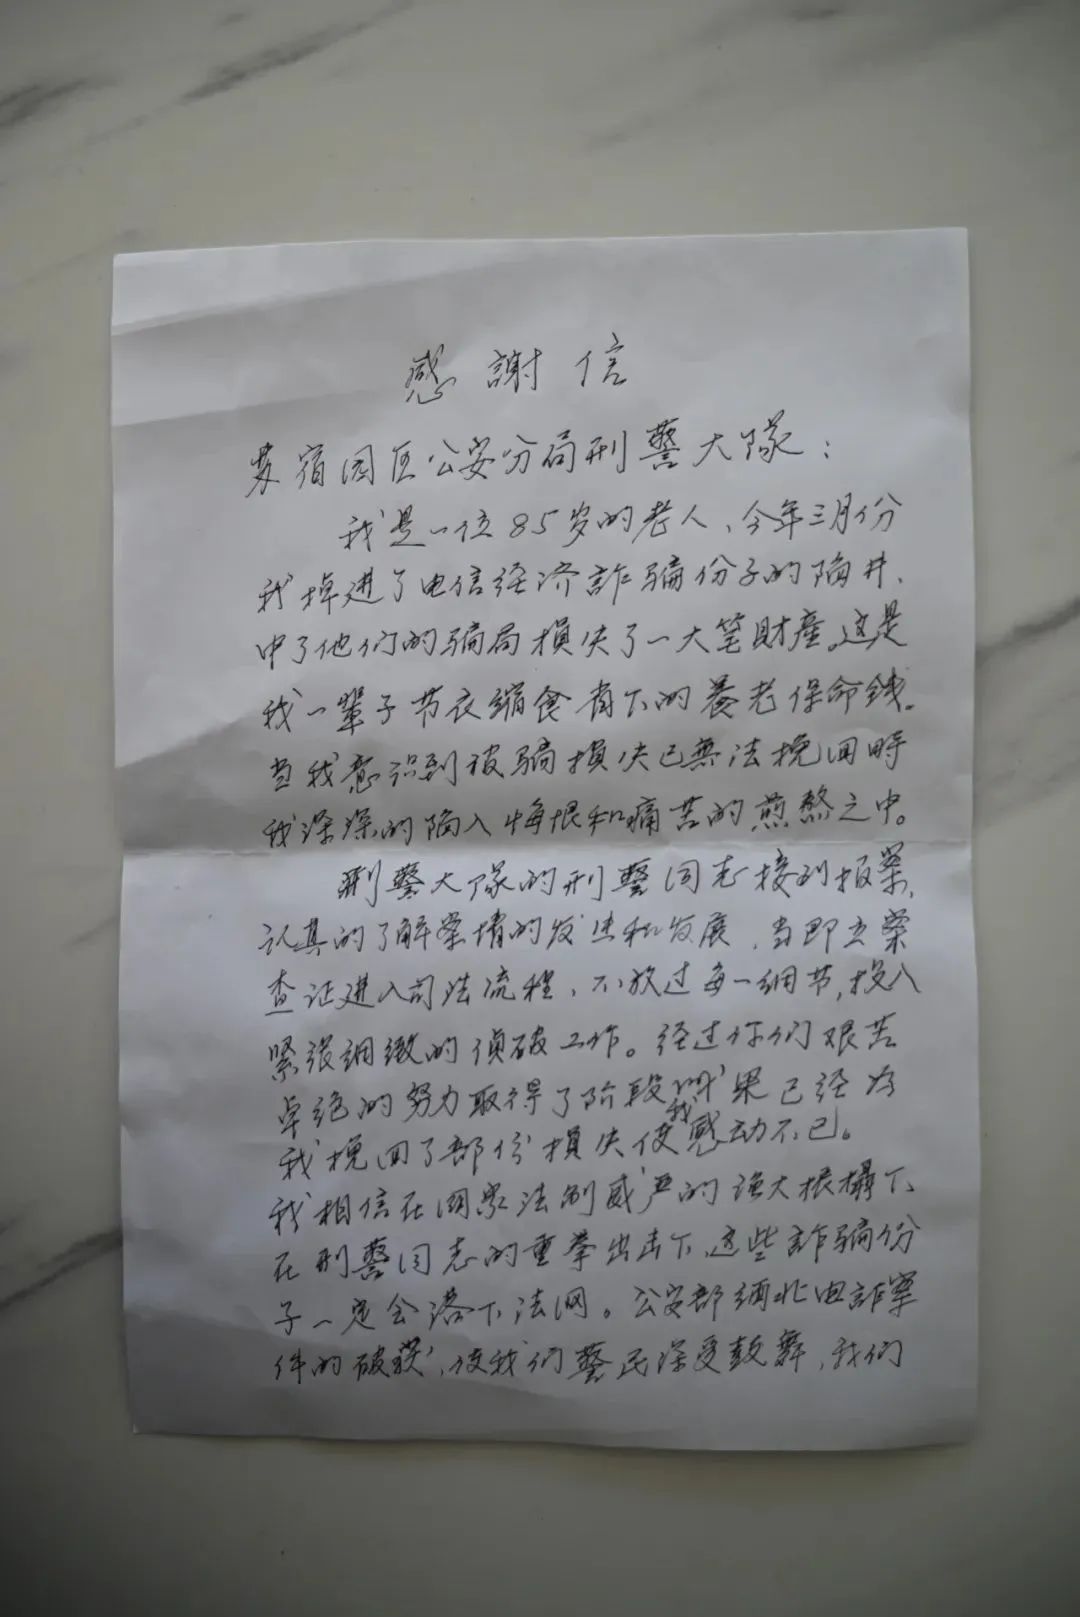 感謝信
苏宿园区公安分局刑警大隊：
我是一位85岁的老人、今年三月份
我掉进了电信经济詐骗份子的陷井、
中了他们的骗局損失了一大笔財產。这是
我一辈子节衣缩食省下的養老保命錢。
当我意识到被骗損失已無法挽回時
我深深的陷入悔恨和痛苦的煎熬之中。
刑警大隊的刑警同志接到报案，
认真的了解案情的发生和发展，当即立案
查证进入司法流程、不放过每一细节，投入
緊张細緻的偵破工作。经过你们艰苦
卓绝的努力取得了阶段性成果已经为
我挽回了部份損失使我感动不已。
我相信在國家法制威严的强大根攝下、
在刑警同志的重拳出击下、这些詐骗份
子一定会落下法网。公安部缅北电詐案
件的破获，使我们警民深受鼓舞，我们